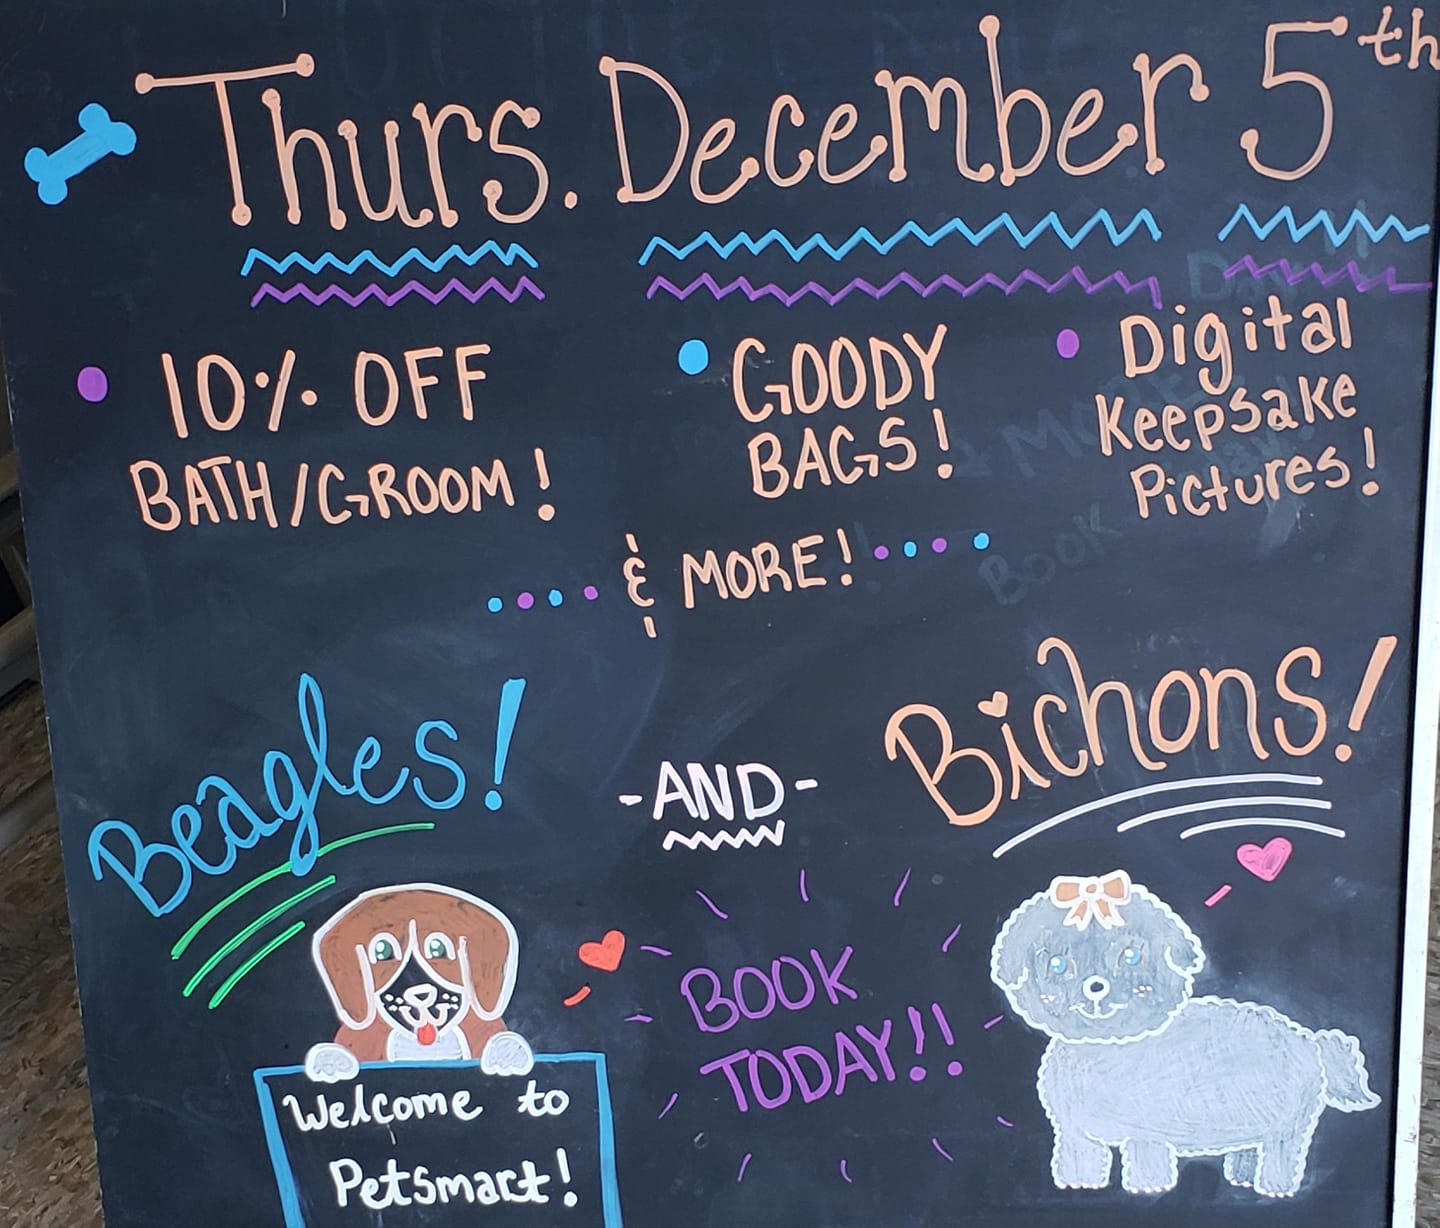 Thurs. December 5th
10% OFF
BATH/GROOM!
GOODY
BAGS!
Digital
Keepsake
Pictures!
& MORE!
Beagles!
-AND-
Bichons!
BOOK
TODAY!!
Welcome to
Petsmart!